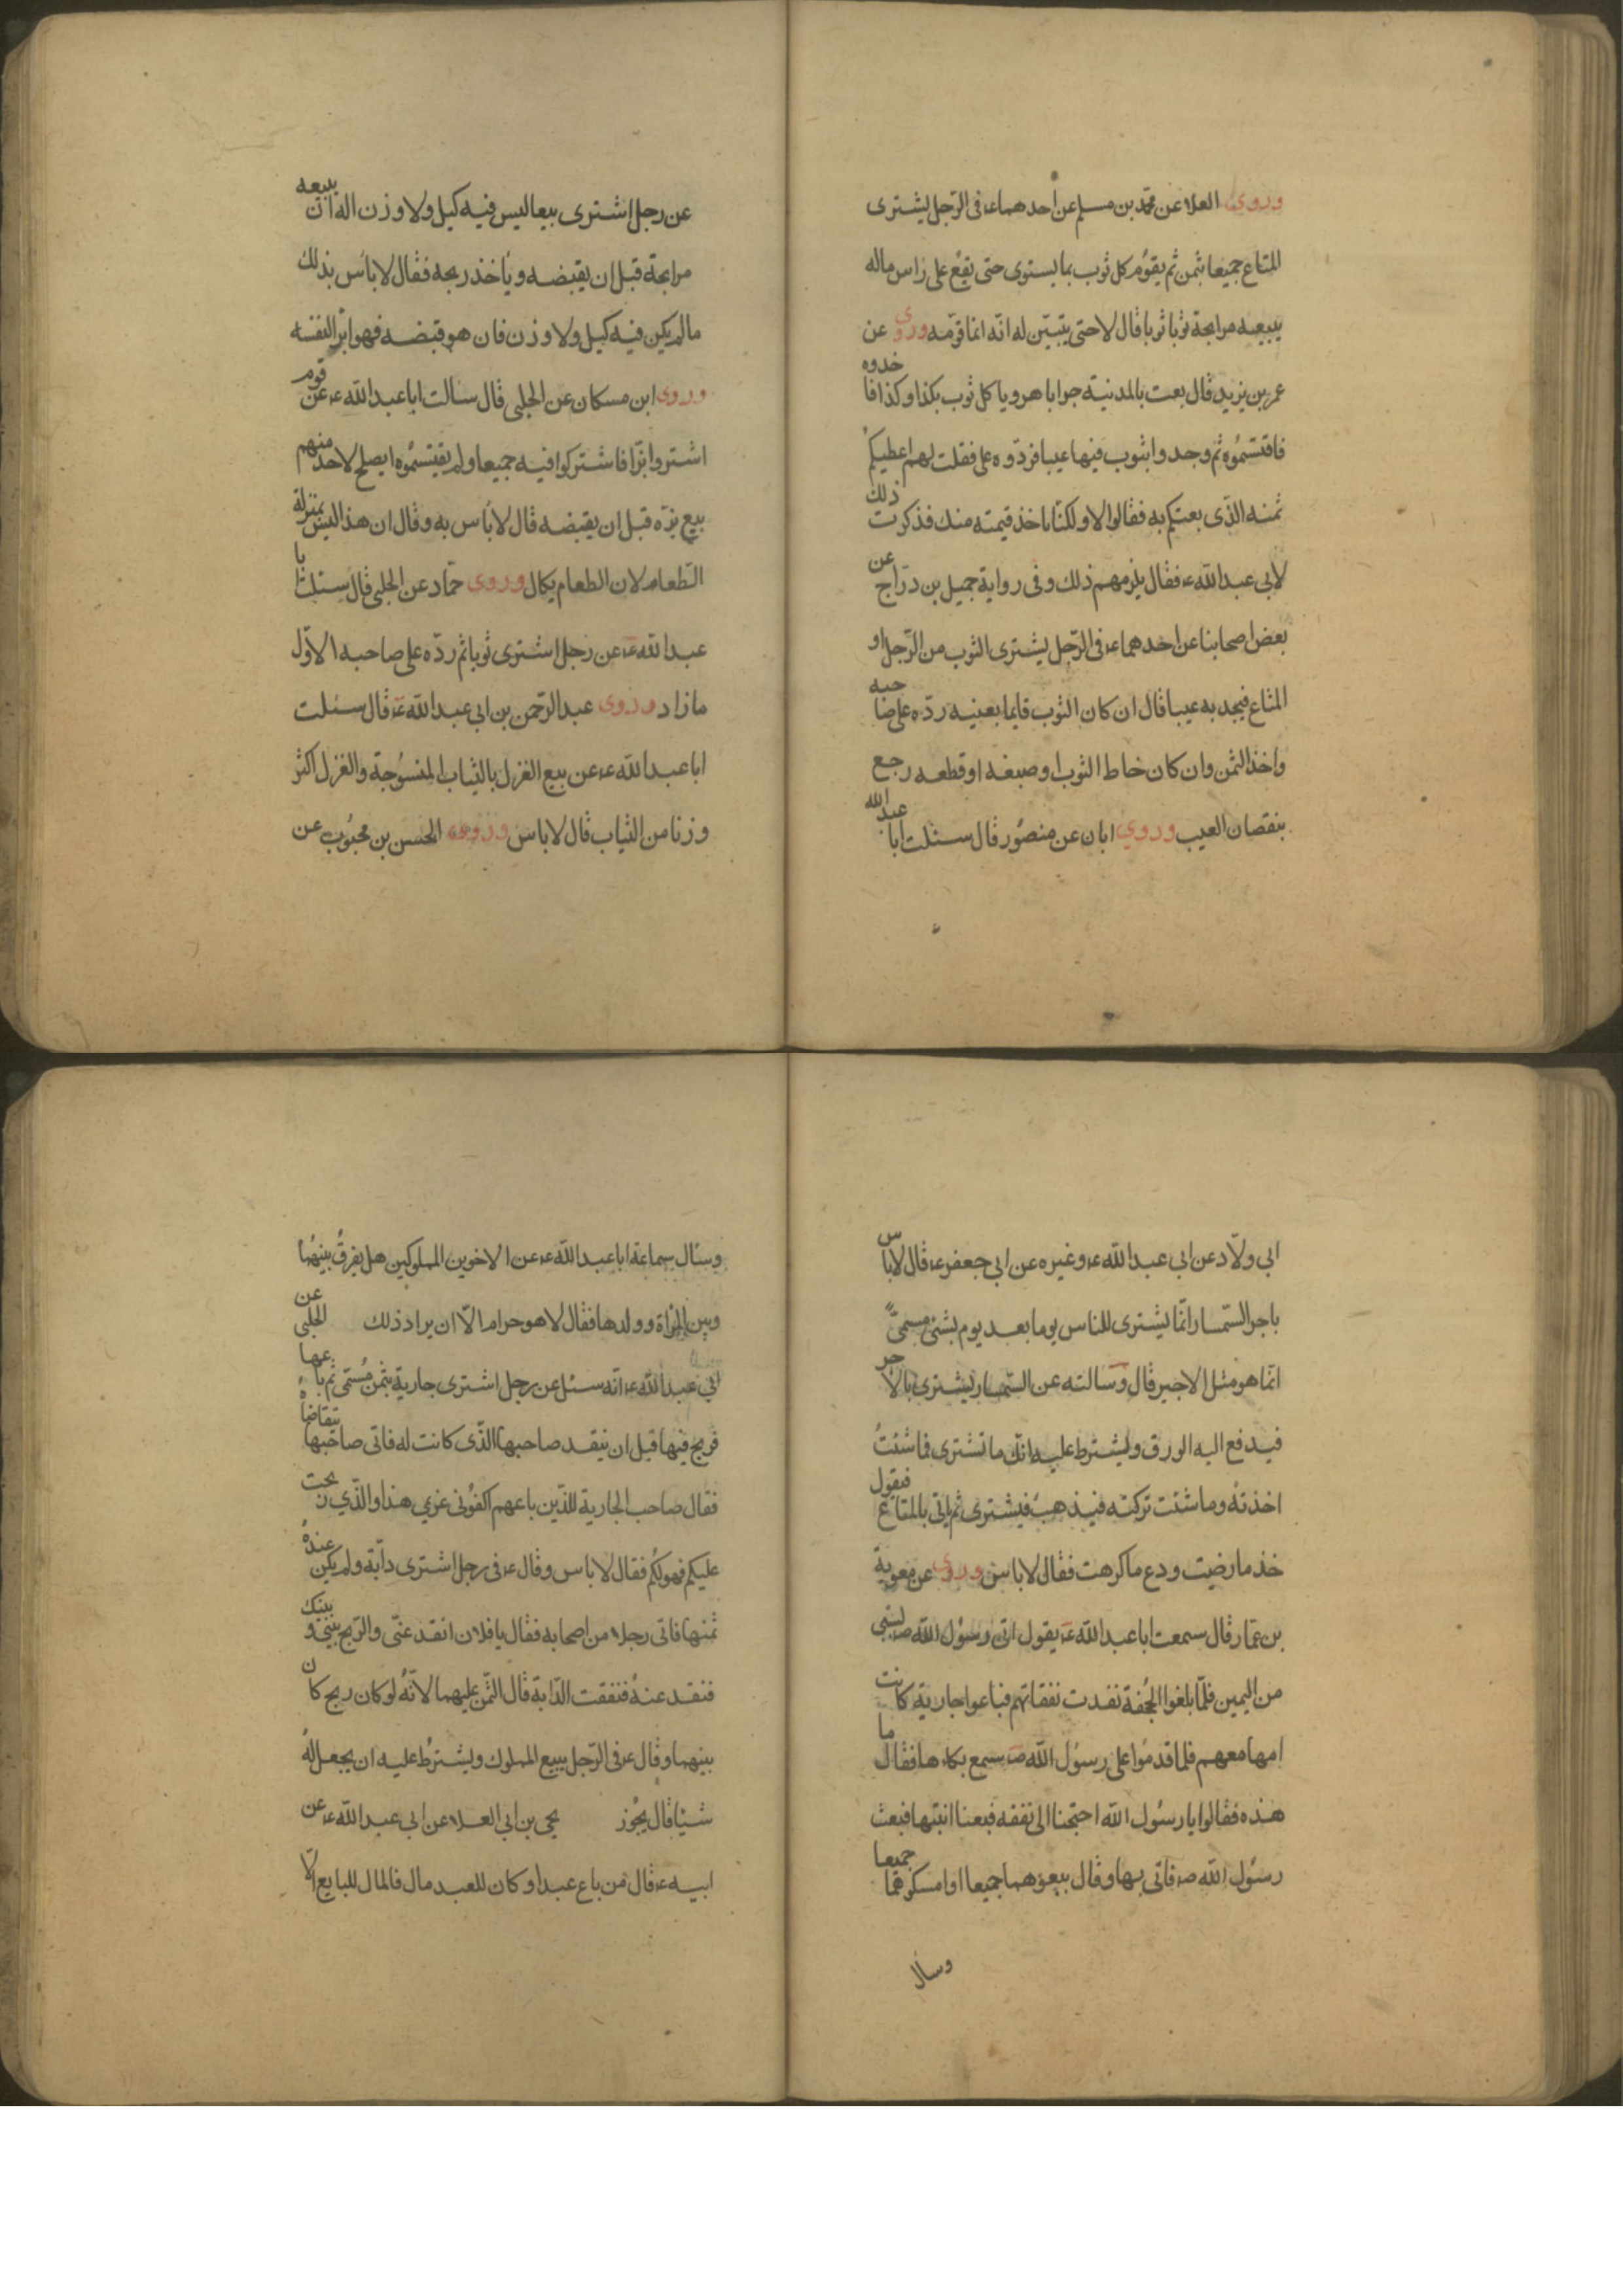 وروی العلا عن محمد بن مسلم عن احدهما ع فی الرجل یشتری
المتاع جمیعا بثمن ثم یقوم کل ثوب بما یستوی حتی یقع علی راس ماله
یبیعه مرابحة ثوبا ثوبا قال لا حتی یتبین له انه انما قومه وروی عن
عمر بن یزید قال بعت بالمدینة جرابا هرویا کل ثوب بکذا وکذا فاخذوه
فاقتسموه ثم وجدوا بثوب فیها عیبا فردوه علی فقلت لهم اعطیکم
ثمنه الذی بعتکم به فقالوا لا ولکنا ناخذ قیمته منک فذکرت ذلک
لابی عبد الله ع فقال یلزمهم ذلک وفی روایة جمیل بن دراج عن
بعض اصحابنا عن احدهما ع فی الرجل یشتری الثوب من الرجل او
المتاع فیجد به عیبا قال ان کان الثوب قایما بعینه رده علی صاحبه
واخذ الثمن وان کان خاط الثوب او صبغه او قطعه رجع
بنقصان العیب وروی ابان عن منصور قال سئلت ابا عبد الله
عن رجل اشتری بیعا لیس فیه کیل ولا وزن اله ان یبیعه
مرابحة قبل ان یقبضه ویاخذ ربحه فقال لا باس بذلک
ما لم یکن فیه کیل ولا وزن فان هو قبضه فهو ابرا لنفسه
وروی ابن مسکان عن الحلبی قال سالت ابا عبد الله ع عن قوم
اشتروا بزا فاشترکوا فیه جمیعا ولم یقتسموه ایصلح لاحد منهم
بیع بزه قبل ان یقبضه قال لا باس به وقال ان هذا لیس بمنزلة
الطعام لان الطعام یکال وروی حماد عن الحلبی قال سئلت ابا
عبد الله ع عن رجل اشتری ثوبا ثم رده علی صاحبه الاول
ما زاد وروی عبد الرحمن بن ابی عبد الله ع قال سئلت
ابا عبد الله ع عن بیع الغزل بالثیاب المنسوجة والغزل اکثر
وزنا من الثیاب قال لا باس وروی الحسن بن محبوب عن
ابی ولاد عن ابی عبد الله ع وغیره عن ابی جعفر ع قال لا باس
باجر السمسار انما یشتری للناس یوما بعد یوم بشئ مسمی
انما هو مثل الاجیر قال وسالته عن السمسار یشتری بالاجر
فیدفع الیه الورق ویشترط علیه انک ما تشتری فما شئت
اخذته وما شئت ترکته فیذهب فیشتری ثم یاتی بالمتاع فیقول
خذ ما رضیت ودع ما کرهت فقال لا باس وروی عن معویة
بن عمار قال سمعت ابا عبد الله ع یقول اتی رسول الله ص بسبی
من الیمین فلما بلغوا الجحفة نفدت نفقاتهم فباعوا جاریة کانت
امها معهم فلما قدموا علی رسول الله ص سمع بکاءها فقال ما
هذه فقالوا یا رسول الله احتجنا الی نفقه فبعنا ابنتها فبعث
رسول الله ص فاتی بها وقال بیعوهما جمیعا او امسکوهما جمیعا
وسال
وسئال سماعة ابا عبد الله ع عن الاخوین المملوکین هل یفرق بینهما
وبین المراة وولدها فقال لا هو حرام الا ان یرادذلک الحلبی عن
ابی عبد الله ع انه سئل عن رجل اشتری جاریة بثمن مسمی ثم باعها
فربح فیها قبل ان ینقد صاحبها الذی کانت له فاتی صاحبها یتقاضاه
فقال صاحب الجاریة للذین باعهم اکفونی غریمی هذا والذی ربحت
علیکم فهو لکم فقال لا باس وقال ع فی رجل اشتری دابة ولم یکن عنده
ثمنها فاتی رجلا من اصحابه فقال یا فلان انقد عنی والربح بینی وبینک
فنقد عنه فنفقت الدابة قال الثمن علیهما لانه لو کان ربح کان
بینهما وقال ع فی الرجل یبیع المملوک ویشترط علیه ان یجعل له
شیئا قال یجوز یحیی بن ابی العلا عن ابی عبد الله ع عن
ابیه ع قال من باع عبدا وکان للعبد مال فالمال للبایع الا